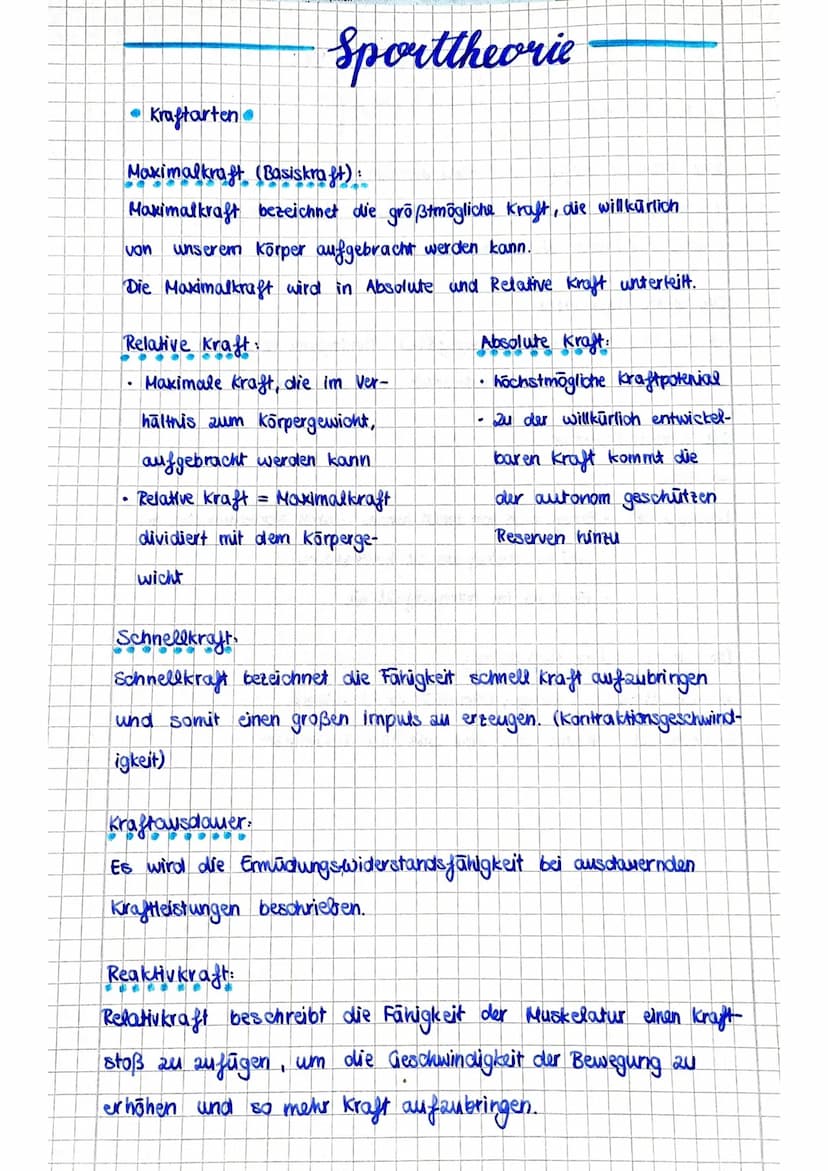 Sporttheorie
• Kraftarten •
Maximalkraft (Basiskraft):
Maximalkraft bezeichnet die größtmögliche Kraft, die willkürlich
von unserem Körper aufgebracht werden kann.
Die Maximalkraft wird in Absolute und Relative Kraft unterteilt.
Relative Kraft:
• Maximale Kraft, die im Ver-
hältnis zum Körpergewicht,
aufgebracht werden kann
• Relative Kraft = Maximalkraft
dividiert mit dem Körperge-
wicht
Absolute Kraft:
• höchstmögliche Kraftpotenial
• Zu der willkürlich entwickel-
baren Kraft kommt die
der autonom geschützen
Reserven hinzu
Schnellkraft:
Schnellkraft bezeichnet die Fähigkeit schnell Kraft aufzubringen
und somit einen großen Impuls zu erzeugen. (Kontraktionsgeschwind-
igkeit)
Kraftausdauer:
Es wird die Ermüdungswiderstandsfähigkeit bei ausdauernden
Kraftleistungen beschrieben.
Reaktivkraft:
Relativkraft beschreibt die Fähigkeit der Muskelatur einen Kraft-
stoß zu zufügen, um die Geschwindigkeit der Bewegung zu
erhöhen und so mehr Kraft aufzubringen.